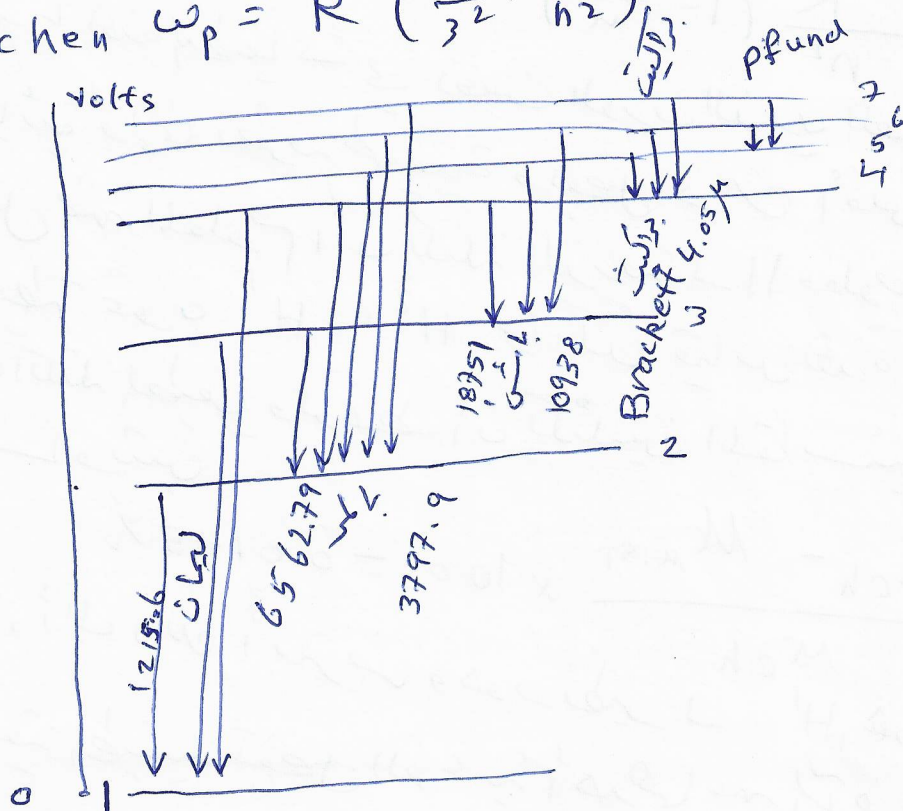 chen ωp = R (1/3² n²)
براكيت pfund
volts
7
6
5
4
براكيت
Brackett 4.05μ
3
18751
باشن
10938
2
6562.79
بالمر
3797.9
1215.6
ليمان
0 1